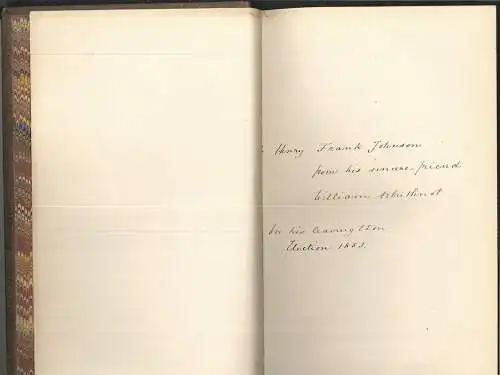 Henry Frank Johnson
from his sincere friend
William Arbuthnot
on his leaving Eton
Election 1853.